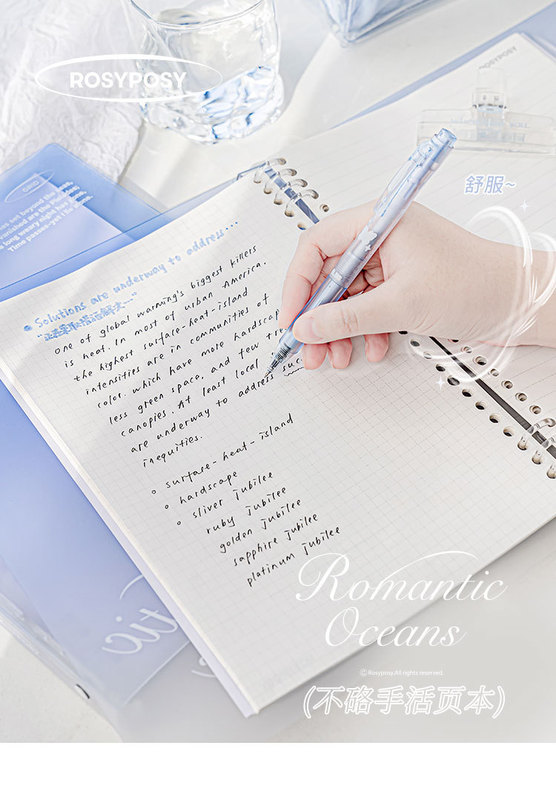 ROSYPOSY
ROSYPOSY
舒服~
Solutions are underway to address...
one of global warming's biggest killers
is heat. In most of urban America.
the highest surface-heat-island
intensities are in communities of
color. which have more hardscap
less green space, and few
canopies. At least local
are underway to address suc
inequities.
surface-heat-island
hardscape
sliver jubilee
ruby jubilee
golden jubilee
sapphire jubilee
platinum jubilee
Romantic
Oceans
© Rosyposy.All rights reserved.
(不硌手活页本)